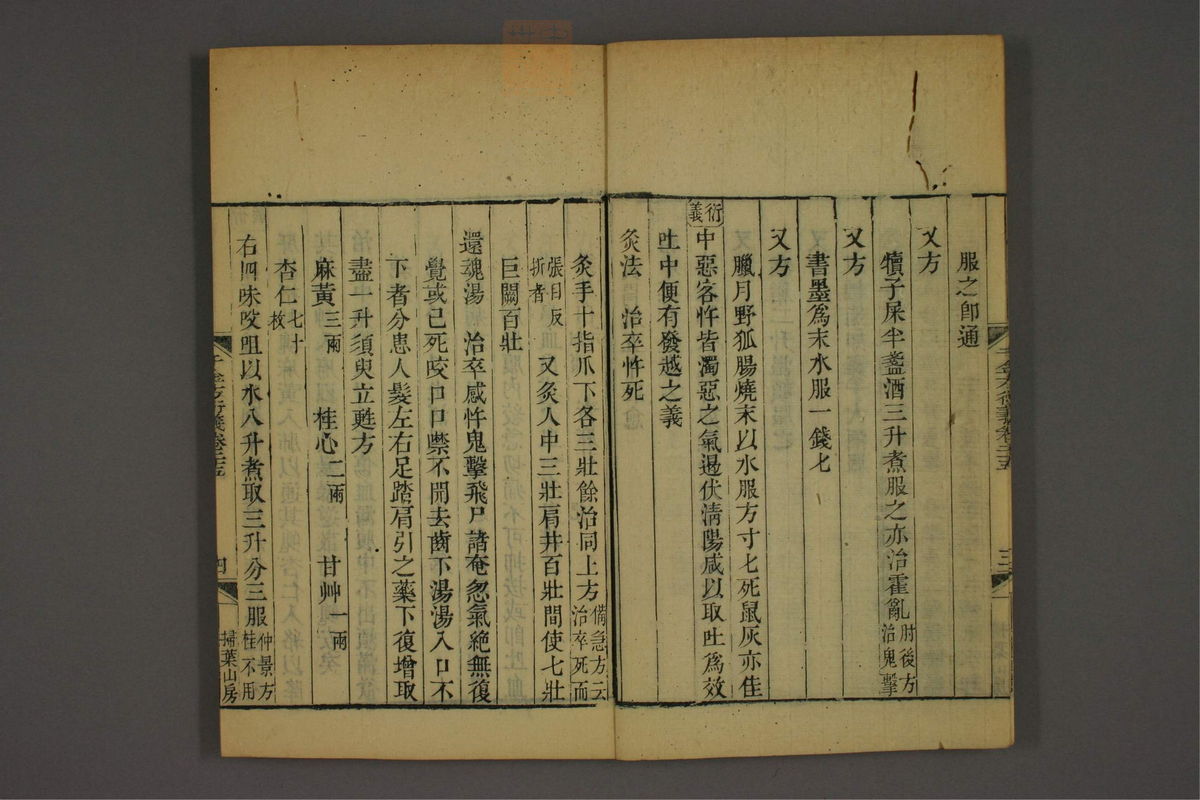 服之卽通
又方
犢子屎半盞酒三升煮服之亦治霍亂肘後方治鬼擊
又方
書墨爲末水服一錢匕
又方
臘月野狐腸燒末以水服方寸匕死鼠灰亦佳
衍義
中惡客忤皆濁惡之氣遏伏淸陽咸以取吐爲效
吐中便有發越之義
灸法 治卒忤死
灸手十指爪下各三壯餘治同上方備急方云治卒死而
張目反折者 又灸人中三壯肩井百壯間使七壯
巨闕百壯
還魂湯 治卒感忤鬼擊飛尸諸奄忽氣絶無復
覺或已死咬口口噤不開去齒下湯湯入口不
下者分患人髮左右足踏肩引之藥下復增取
盡一升須臾立甦方
麻黃三兩 桂心二兩 甘艸一兩
杏仁七十枚
右四味㕮咀以水八升煮取三升分三服仲景方桂不用
千金方衍義卷二十五
三
四
掃葉山房